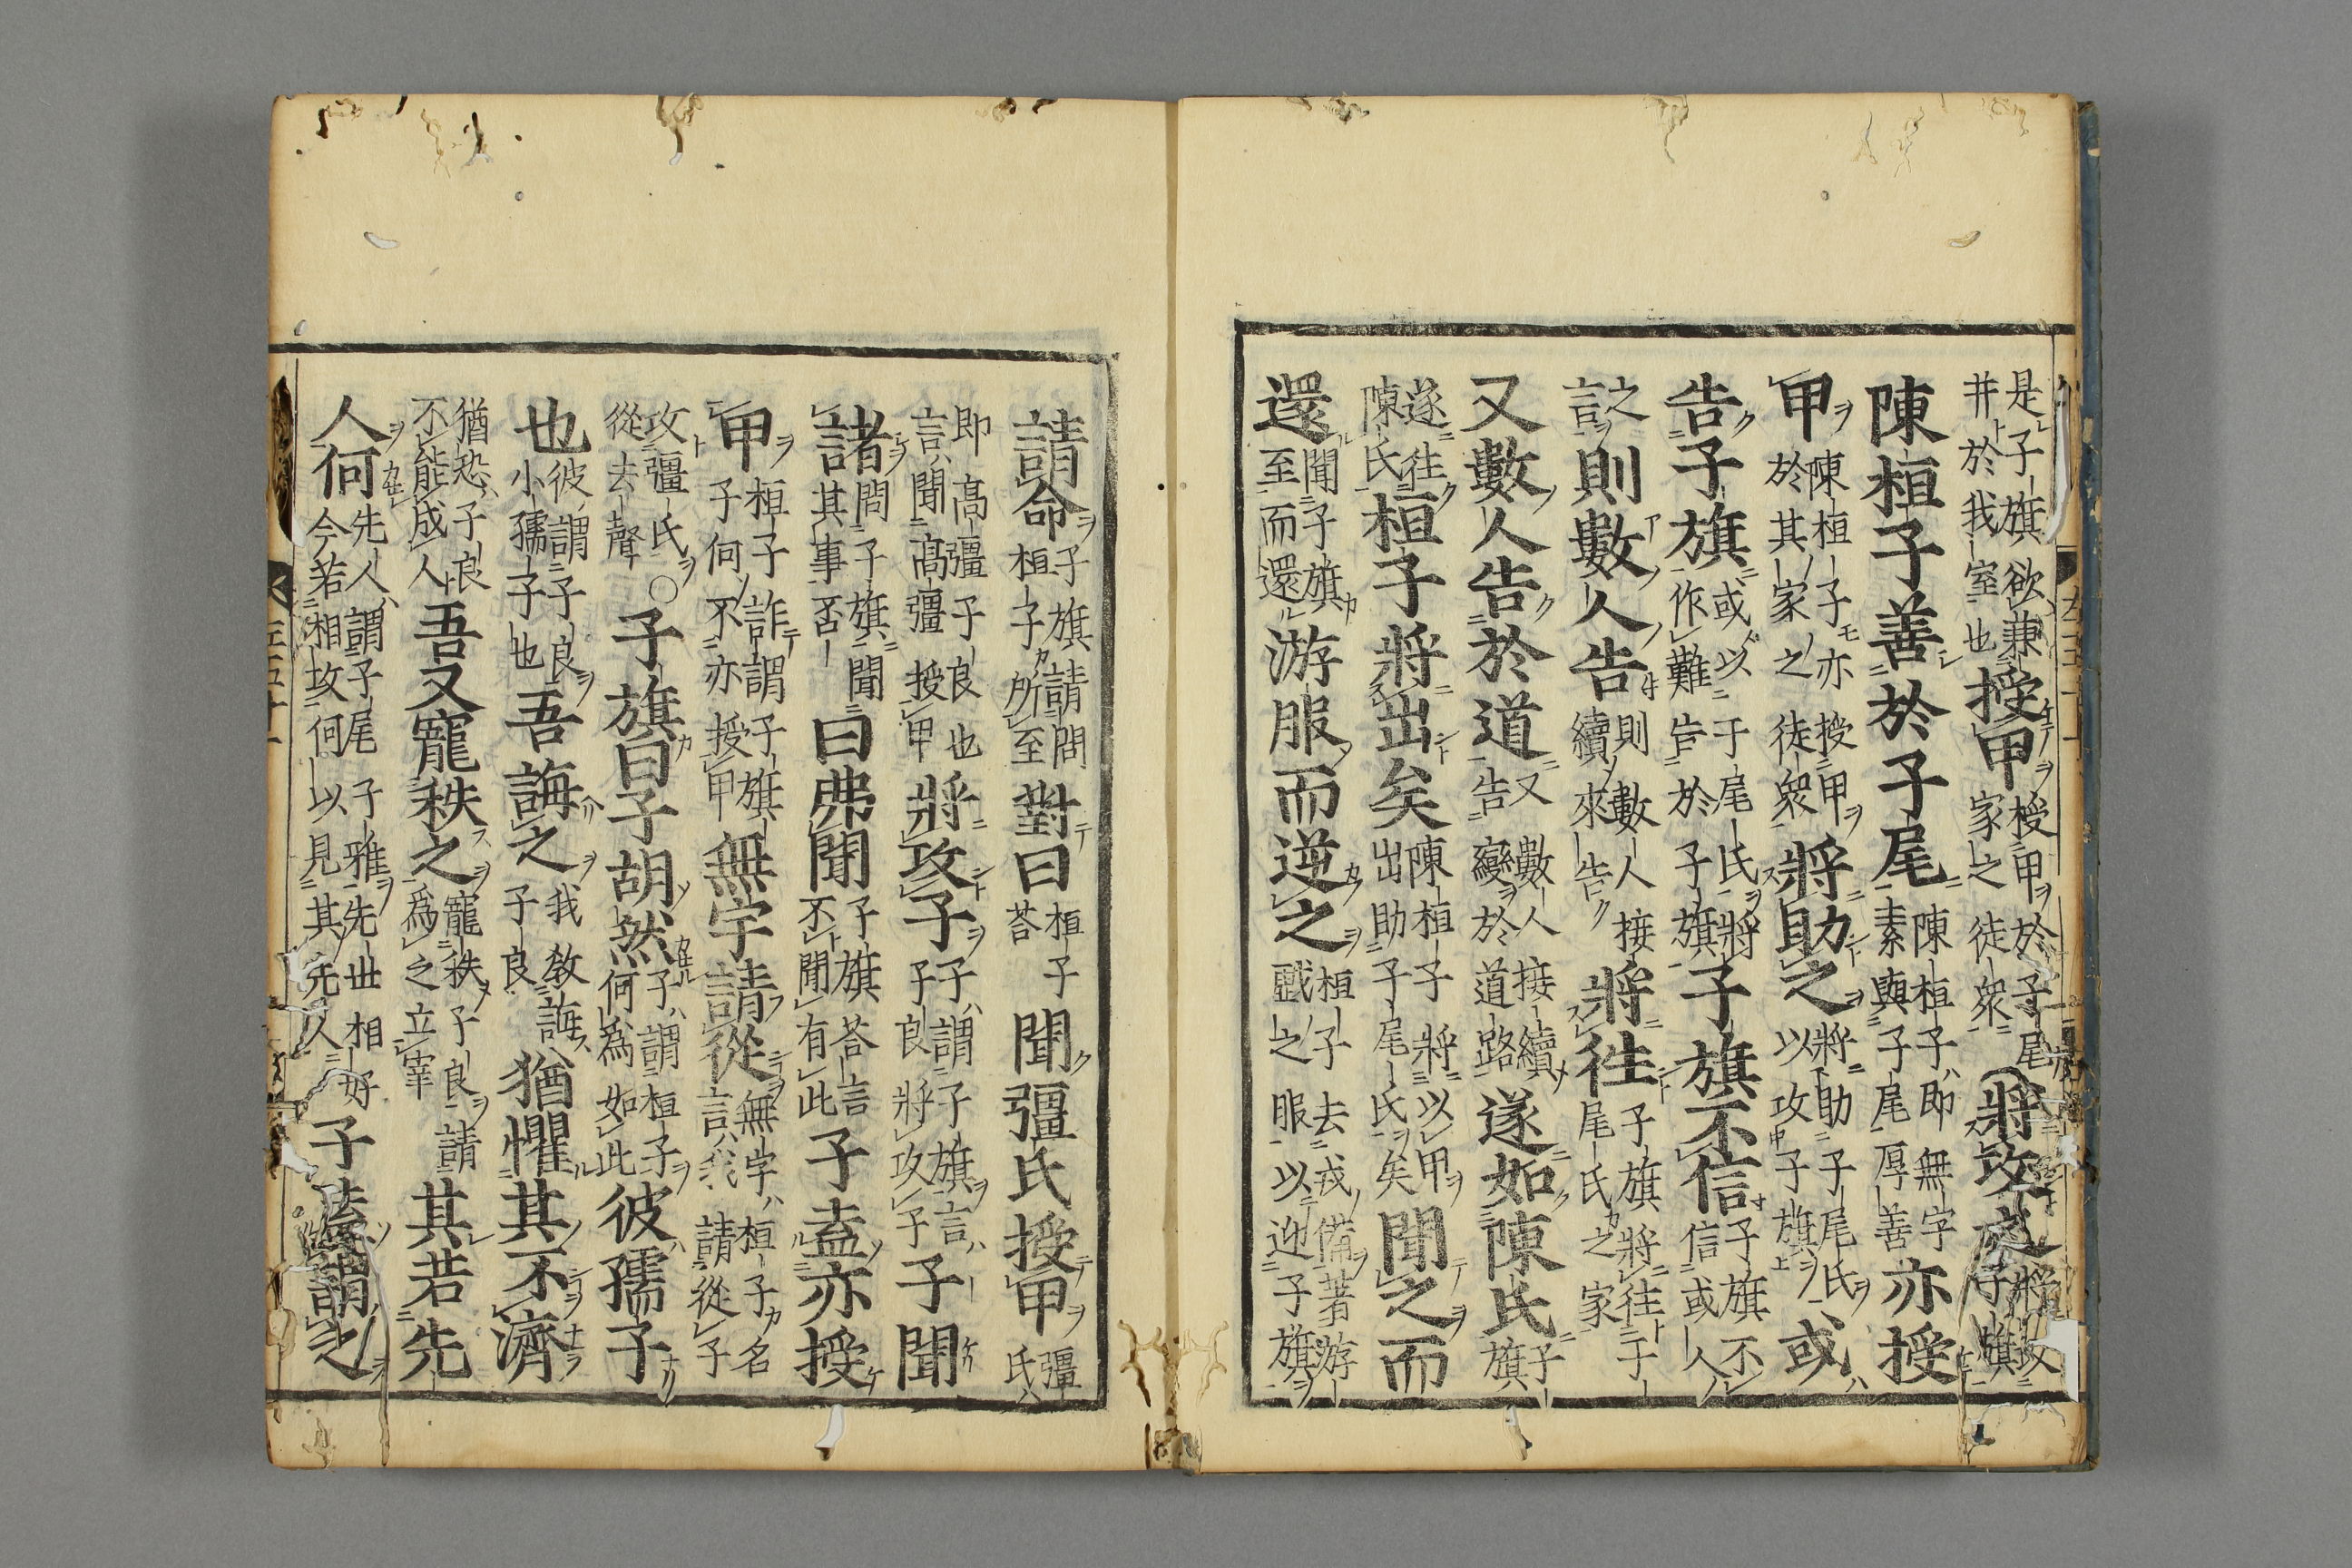 是子旗欲兼
并於我室也授甲授甲於子尾
家之徒衆將攻之將攻
子旗
陳桓子善於子尾陳桓子即無宇
素與子尾厚善亦授
甲陳桓子亦授甲
於其家之徒衆將助之將助子尾氏
以攻子旗或
告子旗或以子尾氏將
作難告於子旗子旗不信子旗不
信或人
之
言則數人告則數人接
續來告將往子旗將往子
尾氏之家
又數人告於道又數人接續
告變於道路遂如陳氏子
旗
遂往
陳氏桓子將出矣陳桓子將以甲
出助子尾氏矣聞之而
還聞子旗
至而還游服而逆之桓子去戎備著游
戲之服以迎子旗
請命子旗請問
桓子所至對曰桓子
荅聞彊氏授甲彊
氏
即高彊子良也
言聞高彊授甲將攻子子謂子旗言
子良將攻子子聞
諸問子旗聞
其事否曰弗聞子旗荅言
不聞有此子盍亦授
甲桓子詐謂子旗
子何不亦授甲無宇請從無宇桓子名
言我請從子
攻彊氏
從去聲○子旗曰子胡然子謂桓子
何爲如此彼孺子
也彼謂子良
小孺子也吾誨之我敎誨
子良猶懼其不濟
猶恐子良
不能成人吾又寵秩之寵秩子良請
爲之立宰其若先
人何先人謂子尾子雅先世相好
今若相攻何以見其先人子盍謂之